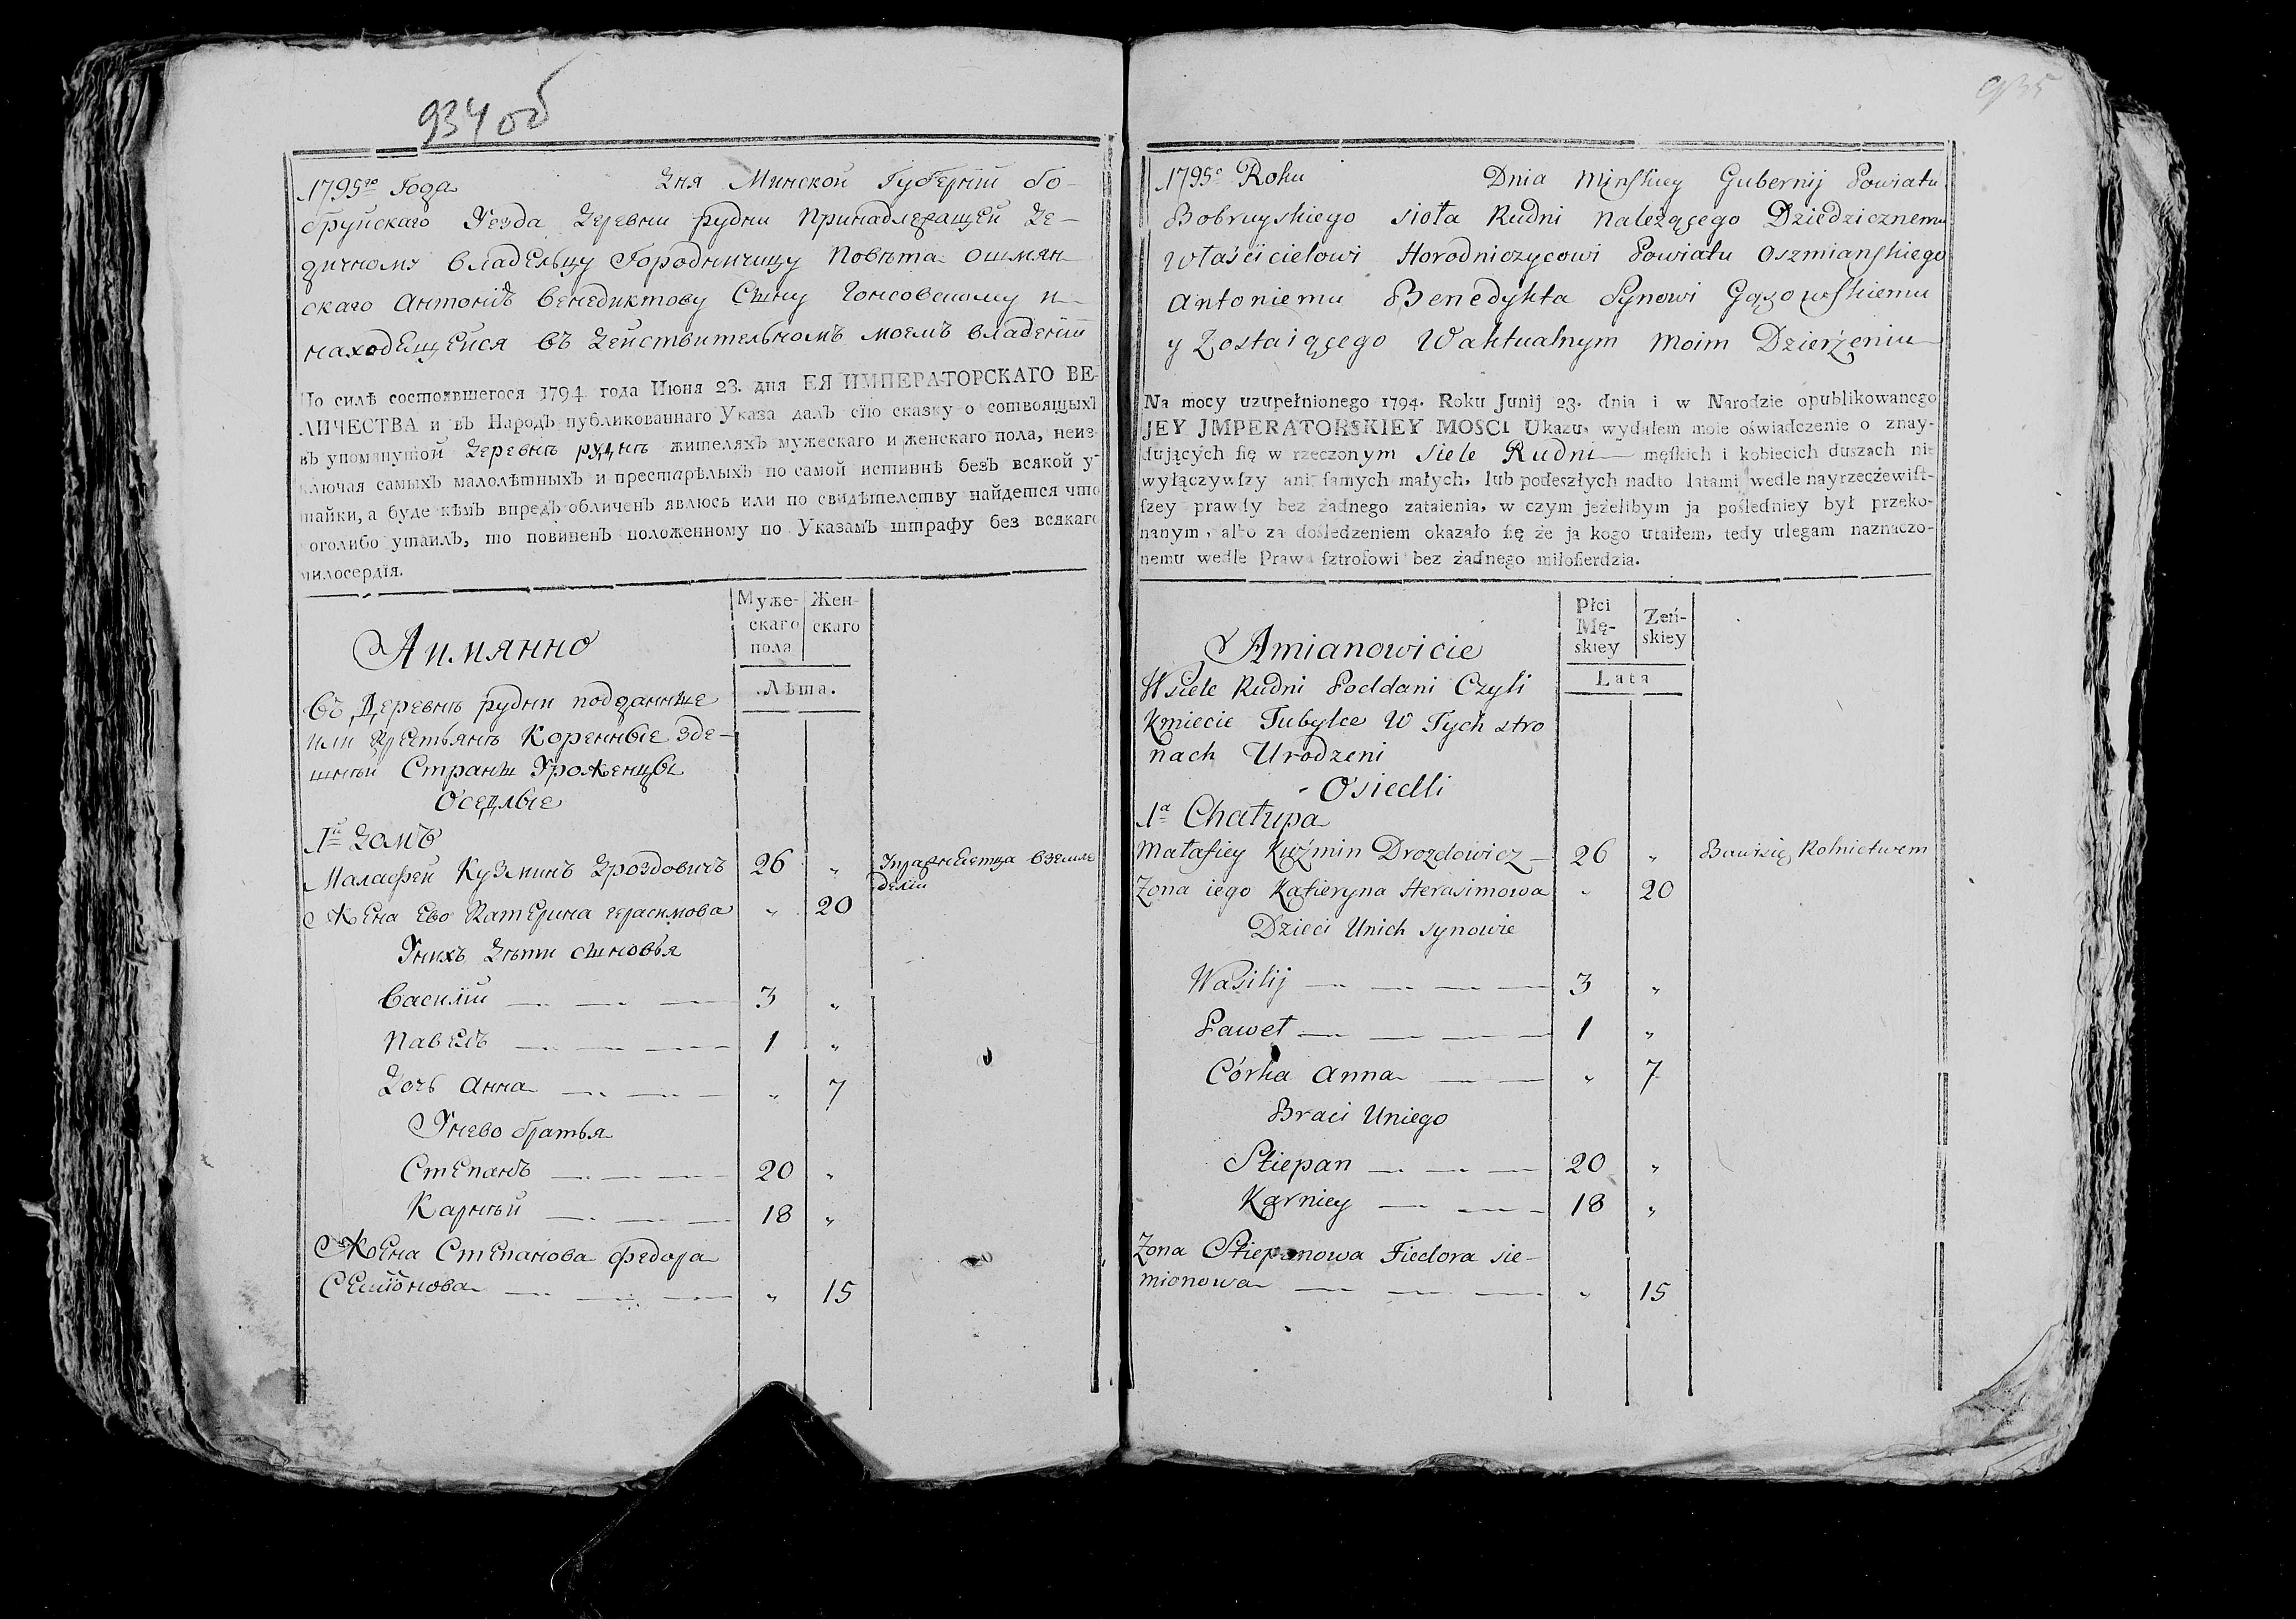 934 об
1795го Года Дня Минской Губернїи Бо-
бруйскаго Уезда Деревни Рудни Принадлежащей Де-
дичному Владельцу Городничицу Повѣта Ошмян-
скаго Антонїю Венедиктову Сыну Гонсовскому и
находящейся въ Действительномъ моемъ владенїи
По силѣ состоявшегося 1794 года Июня 23. дня ЕЯ ИМПЕРАТОРСКАГО ВЕ-
ЛИЧЕСТВА и въ Народъ публикованнаго Указа далъ сїю сказку о состоящыхъ
въ упомянутой Деревнѣ Руднѣ жителяхъ мужескаго и женскаго пола, неиз-
ключая самыхъ малолѣтныхъ и престарѣлыхъ по самой истиннѣ безъ всякой у-
тайки, а буде кѣмъ впредь обличенъ явлюсь или по свидѣтелству найдется что
коголибо утаилъ, то повиненъ положенному по Указамъ штрафу без всякаго
милосердїя.
Муже-
скаго
пола
Жен-
скаго
Лѣта.
Аимянно
Въ Деревнѣ Рудни подданные
или Крестьянѣ Коренные зде-
шнѣй Страны Уроженцы
Оседлые
1й Домъ
Маласфей Кузминъ Дроздовичъ 26 " Упражняетца вземле
делїи
Жена Ево Катерина Герасимова " 20
Унихъ Дѣти сыновья
Василїй 3 "
Павелъ 1 "
Дочь Анна " 7
Унево братья
Степанъ 20 "
Карнѣй 18 "
Жена Степанова Федора
Семїонова " 15
935
1795o Roku Dnia Minskiey Gubernij Powiatu
Bobruyskiego sioła Rudni Należącego Dziedzicznemu
Właścicielowi Horodniczycowi Powiatu Oszmianskiego
Antoniemu Benedykta Synowi Gąsowskiemu
y Zostaiącego W aktualnym Moim Dzierżeniu
Na mocy uzupełnionego 1794. Roku Junij 23. dnia i w Narodzie opublikowanego
JEY JMPERATORSKIEY MOSCI Ukazu, wydałem moie oświadczenie o znay-
dujących ſię w rzeczonym siele Rudni męſkich i kobiecich duszach nie
wyłączywſzy ani ſamych małych, lub podeszłych nadto latami wedle nayrzeczewiſt-
ſzey prawdy bez żadnego zataienia, w czym jeżelibym ja poſledniey był przeko-
nanym, albo za doſledzeniem okazało ſię że ja kogo utaiłem, tedy ulegam naznaczo-
nemu wedle Prawa ſztrofowi bez żadnego miłoſierdzia.
Płci
Mę-
skiey
Zeń-
skiey
Lata
Amianowicie
W siele Rudni Poddani Czyli
Kmiecie Tubylce W Tych stro
nach Urodzeni
Osiedli
1a Chałupa
Małafiey Kuźmin Drozdowicz 26 " Bawi się Rolnictwem
Zona iego Katieryna Herasimowa " 20
Dzieci Unich synowie
Wasilij 3 "
Paweł 1 "
Córka Anna " 7
Braci Uniego
Stiepan 20 "
Karniey 18 "
Zona Stiepanowa Fiedora sie-
mionowa " 15